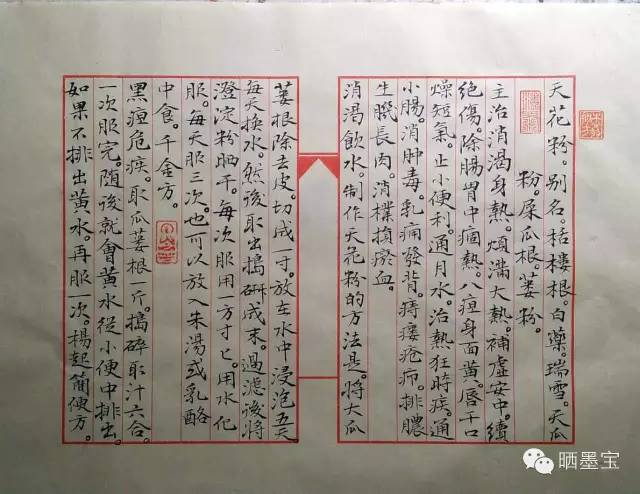 天花粉。别名。栝楼根。白藥。瑞雪。天瓜
粉。屎瓜根。蒌粉。
主治消渴身熱。煩滿大熱。補虛安中。續
絶傷。除腸胃中痼熱。八疸身面黄。唇干口
燥短氣。止小便利。通月水。治熱狂時疾。通
小腸。消肿毒。乳痈發背。痔瘻瘡疖。排膿
生肌長肉。消撲損瘀血。
消渴飲水。制作天花粉的方法是。將大瓜
蒌根除去皮。切成一寸。放在水中浸泡五天
每天换水。然後取出搗研成末。過滤後將
澄淀粉晒干。每次服用一方寸匕。用水化
服。每天服三次。也可以放入朱湯或乳酪
中食。千金方。
黑疸危疾。取瓜蒌根一斤。搗碎取汁六合。
一次服完。随後就會黄水從小便中排出。
如果不排出黄水。再服一次。楊起簡便方。
晒墨宝